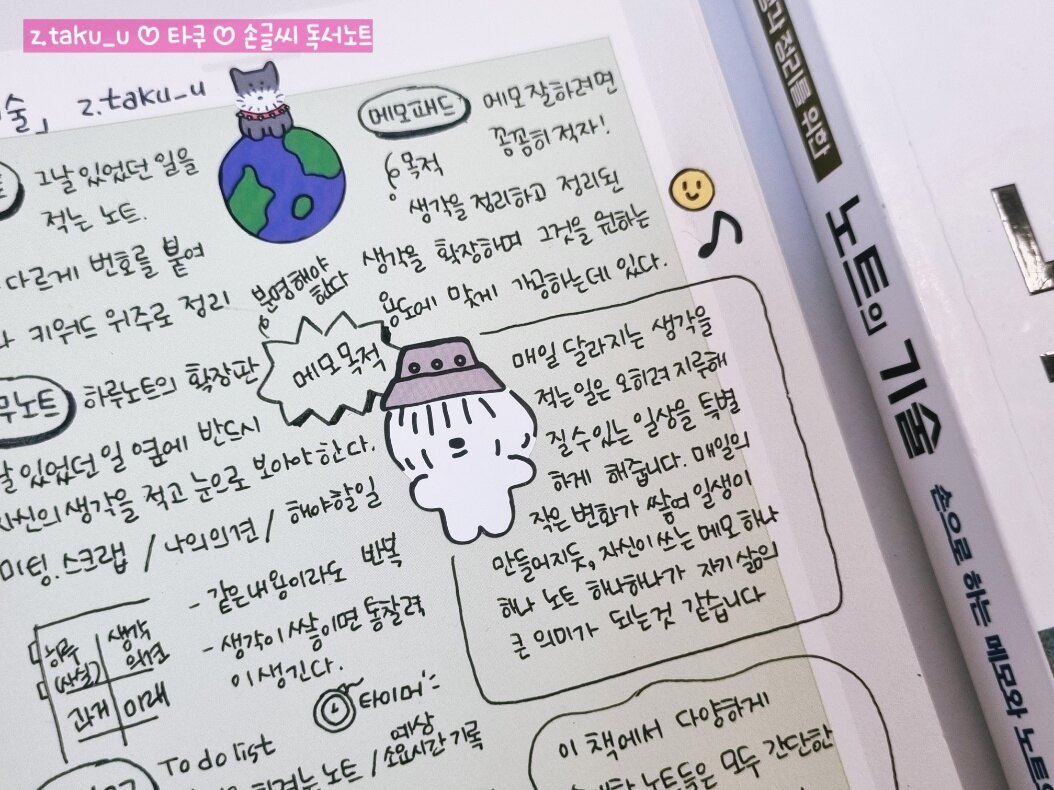 z.taku_u ♡ 타쿠 ♡ 손글씨 독서노트
술」 z.taku_u
그날 있었던 일을
적는 노트.
다르게 번호를 붙여
키워드 위주로 정리
하루노트의 확장판
있었던 일 옆에 반드시
자신의 생각을 적고 눈으로 보아야 한다.
미팅. 스크랩 / 나의의견 / 해야할일
하루
(사실)
생각
의견
과거
미래
- 같은내용이라도 반복
- 생각이 쌓이면 통찰력
이 생긴다.
타이머
To do list
노트 / 예상
소요시간 기록
메모패드
메모 잘하려면
꼼꼼히 적자!
목적
생각을 정리하고 정리된
생각을 확장하며 그것을 원하는
용도에 맞게 가공하는데 있다.
분명해야
한다
메모 목적
매일 달라지는 생각을
적는 일은 오히려 지루해
질 수 있는 일상을 특별
하게 해줍니다. 매일의
작은 변화가 쌓여 일생이
만들어지듯, 자신이 쓰는 메모 하나
하나 노트 하나하나가 자기 삶의
큰 의미가 되는것 같습니다
이 책에서 다양하게
노트들은 모두 간단한
정리를 위한
노트의 기술
손으로 하는 메모와 노트